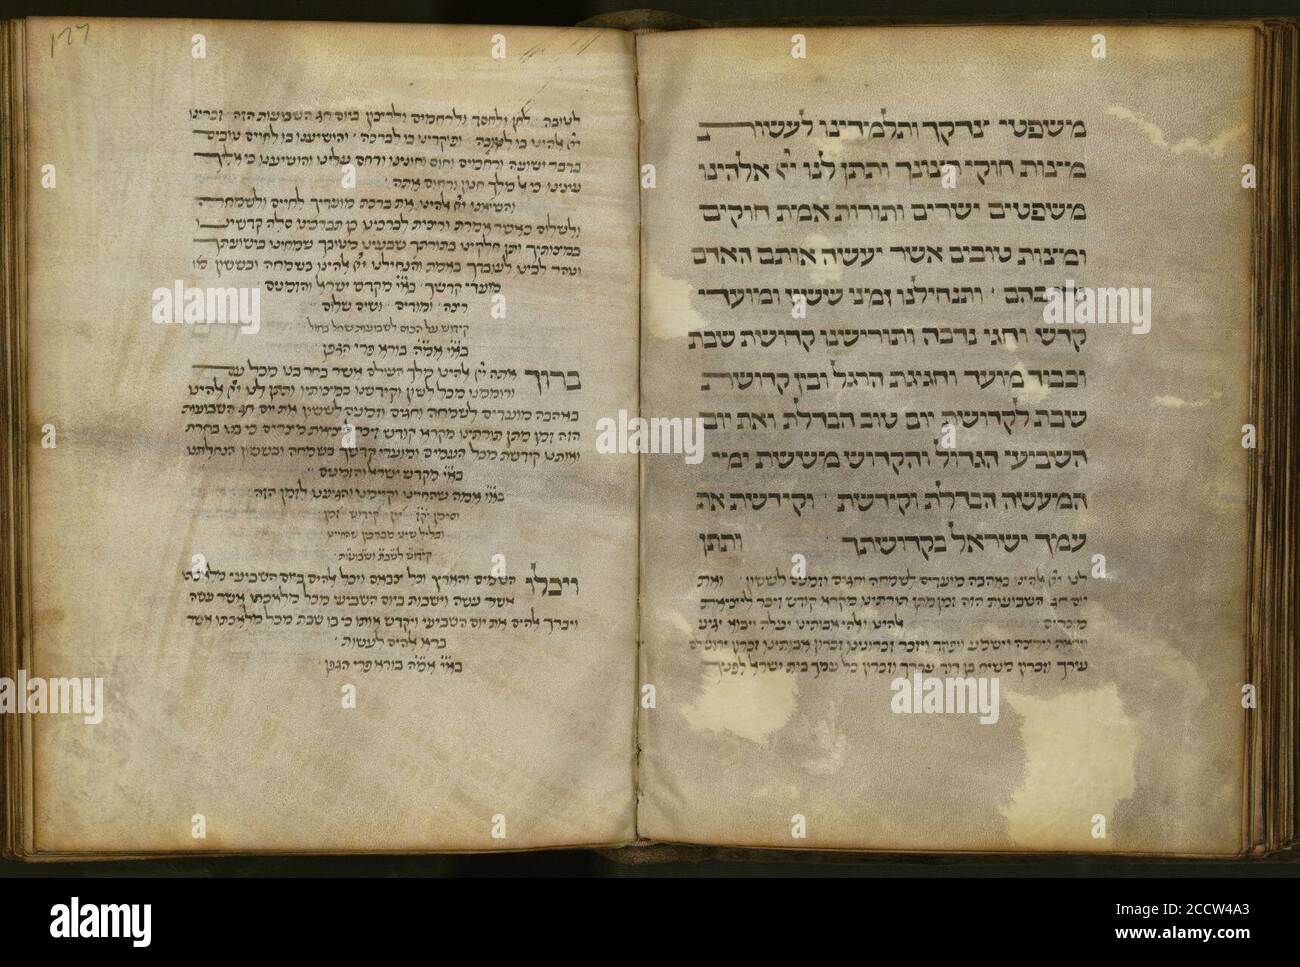 משפטי צדקך ותלמדינו לעשות
מיצות חוקי רצונך ותתן לנו יי אלהינו
משפטים ישרים ותורות אמת חוקים
ומיצות טובים אשר יעשה אותם האדם
וחי בהם ותנחילנו זמני ששון ומועדי
קדש וחגי נדבה ותורישנו קדושת שבת
וכבוד מועד וחגיגת הרגל ובין קדושת
שבת לקדושת יום טוב הבדלת ואת יום
השביעי הגדול והקדוש מששת ימי
המעשה הבדלת וקידשת וקידשת את
עמך ישראל בקדושתך ותתן
לנו יי אלהינו באהבה מועדים לשמחה חגים וזמנים לששון ואת
יום חג השבועות הזה זמן מתן תורתינו מקרא קודש זכר ליציאת
מצרים אלהינו ואלהי אבותינו יעלה ויבוא יגיע
ויראה וירצה וישמע ויפקד ויזכר זכרונינו זכרון אבותינו זכרון ירושלם
עירך וזכרון משיח בן דוד עבדך וזכרון כל עמך בית ישראל לפניך
177
לטובה לחן ולחסד ולרחמים ולריצון ביום חג השבועות הזה זכרינו
יי אלהינו בו לטובה ופוקדינו בו לברכה והושיענו בו לחיים טובים
בדבר ישועה ורחמים וחוס וחונינו ורחם עלינו והושיענו כי אליך
עינינו כי מלך חנון ורחום אתה
והשיאנו יי אלהינו את ברכת מועדיך לחיים ולשמחה
ולשלום כאשר אמרת ורצית לברכינו כן תברכינו סלה קדשינו
במצותיך ותן חלקינו בתורתך שבעינו מטובך שמחינו בישועתך
וטהר לבינו לעובדך באמת והנחילנו יי אלהינו בשמחה ובששון
מועדי קדשך מקדש ישראל והזמנים
רצה ומודים ושים שלום
קידוש על הכוס לשבועות שחל בחול
בורא פרי הגפן
ברוך אתה יי אלהינו מלך העולם אשר בחר בנו מכל עם
ורוממנו מכל לשון וקידשנו במצותיו ותתן לנו יי אלהינו
באהבה מועדים לשמחה וחגים וזמנים לששון את יום חג השבועות
הזה זמן מתן תורתינו מקרא קודש זכר ליציאת מצרים כי בנו בחרת
ואותנו קידשת מכל העמים ומועדי קדשך בשמחה ובששון הנחלתנו
מקדש ישראל והזמנים
שהחיינו וקיימנו והגיענו לזמן הזה
וסימן יקז יין קידוש זמן
קידוש לשבת ושבועות
ויכלו השמים והארץ וכל צבאם ויכל אלהים ביום השביעי מלאכתו
אשר עשה וישבות ביום השביעי מכל מלאכתו אשר עשה
ויברך אלהים את יום השביעי ויקדש אותו כי בו שבת מכל מלאכתו אשר
ברא אלהים לעשות
בורא פרי הגפן
alamy
Image ID: 2CCW4A3
www.alamy.com